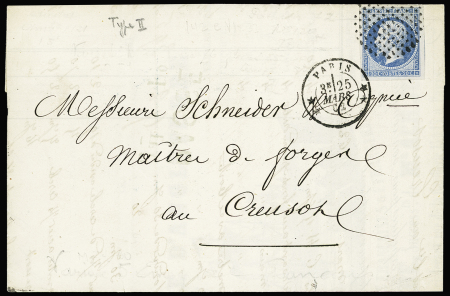 Type II
EMPIRE FRANC.
PARIS
25
MARS
Messieurs Schneider & Compnie
Maîtres de forges
au Creusot